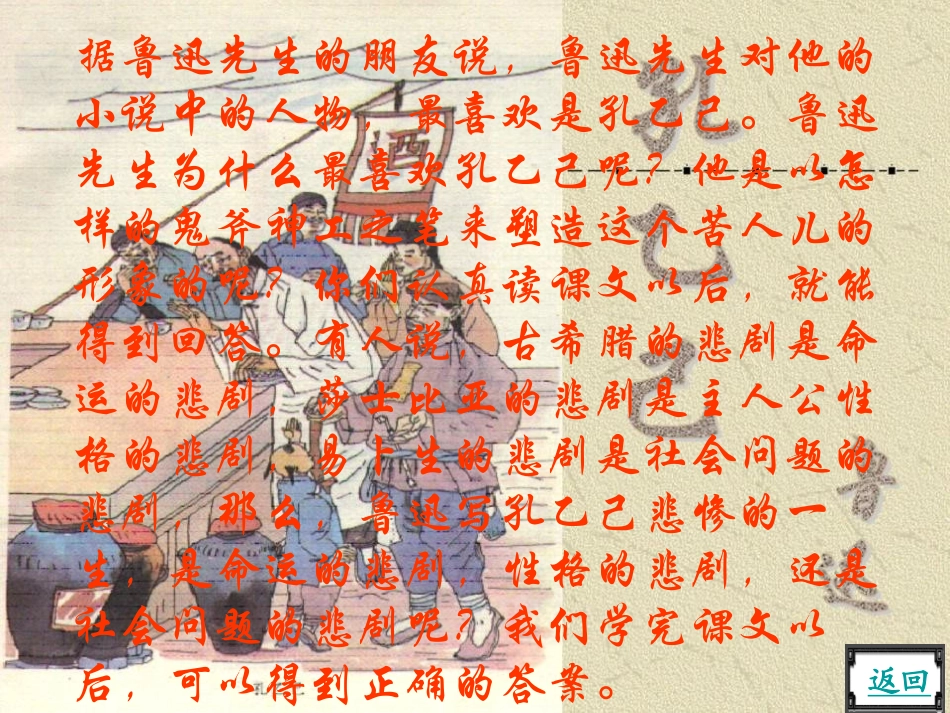 据鲁迅先生的朋友说，鲁迅先生对他的
小说中的人物，最喜欢是孔乙己。鲁迅
先生为什么最喜欢孔乙己呢？他是以怎
样的鬼斧神工之笔来塑造这个苦人儿的
形象的呢？你们认真读课文以后，就能
得到回答。有人说，古希腊的悲剧是命
运的悲剧，莎士比亚的悲剧是主人公性
格的悲剧，易卜生的悲剧是社会问题的
悲剧，那么，鲁迅写孔乙己悲惨的一
生，是命运的悲剧，性格的悲剧，还是
社会问题的悲剧呢？我们学完课文以
后，可以得到正确的答案。
孔乙己
鲁迅
酒
返回